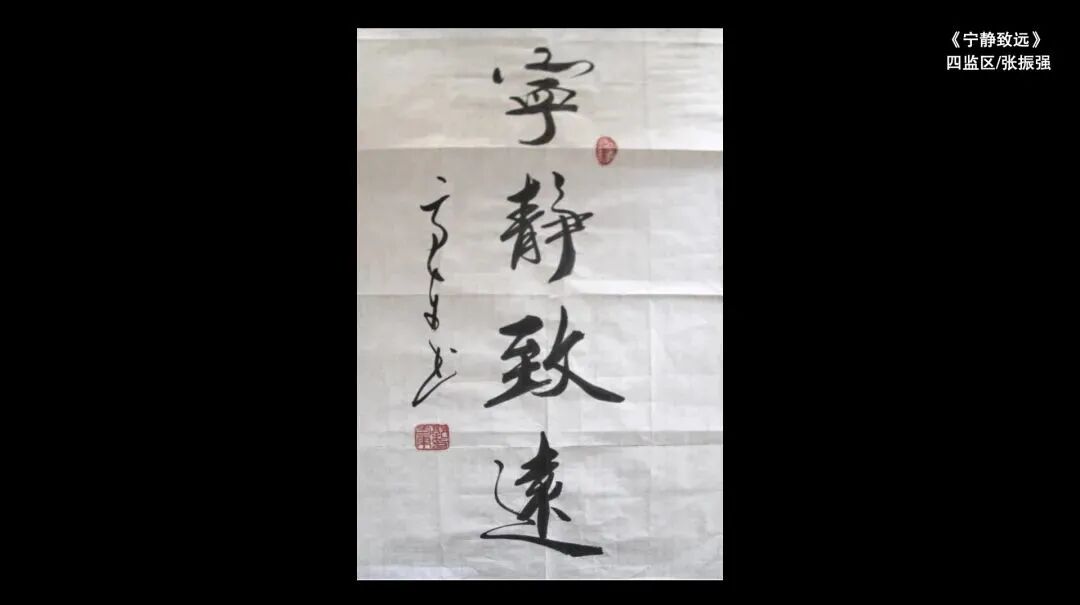 《宁静致远》
四监区/张振强
寧靜致遠